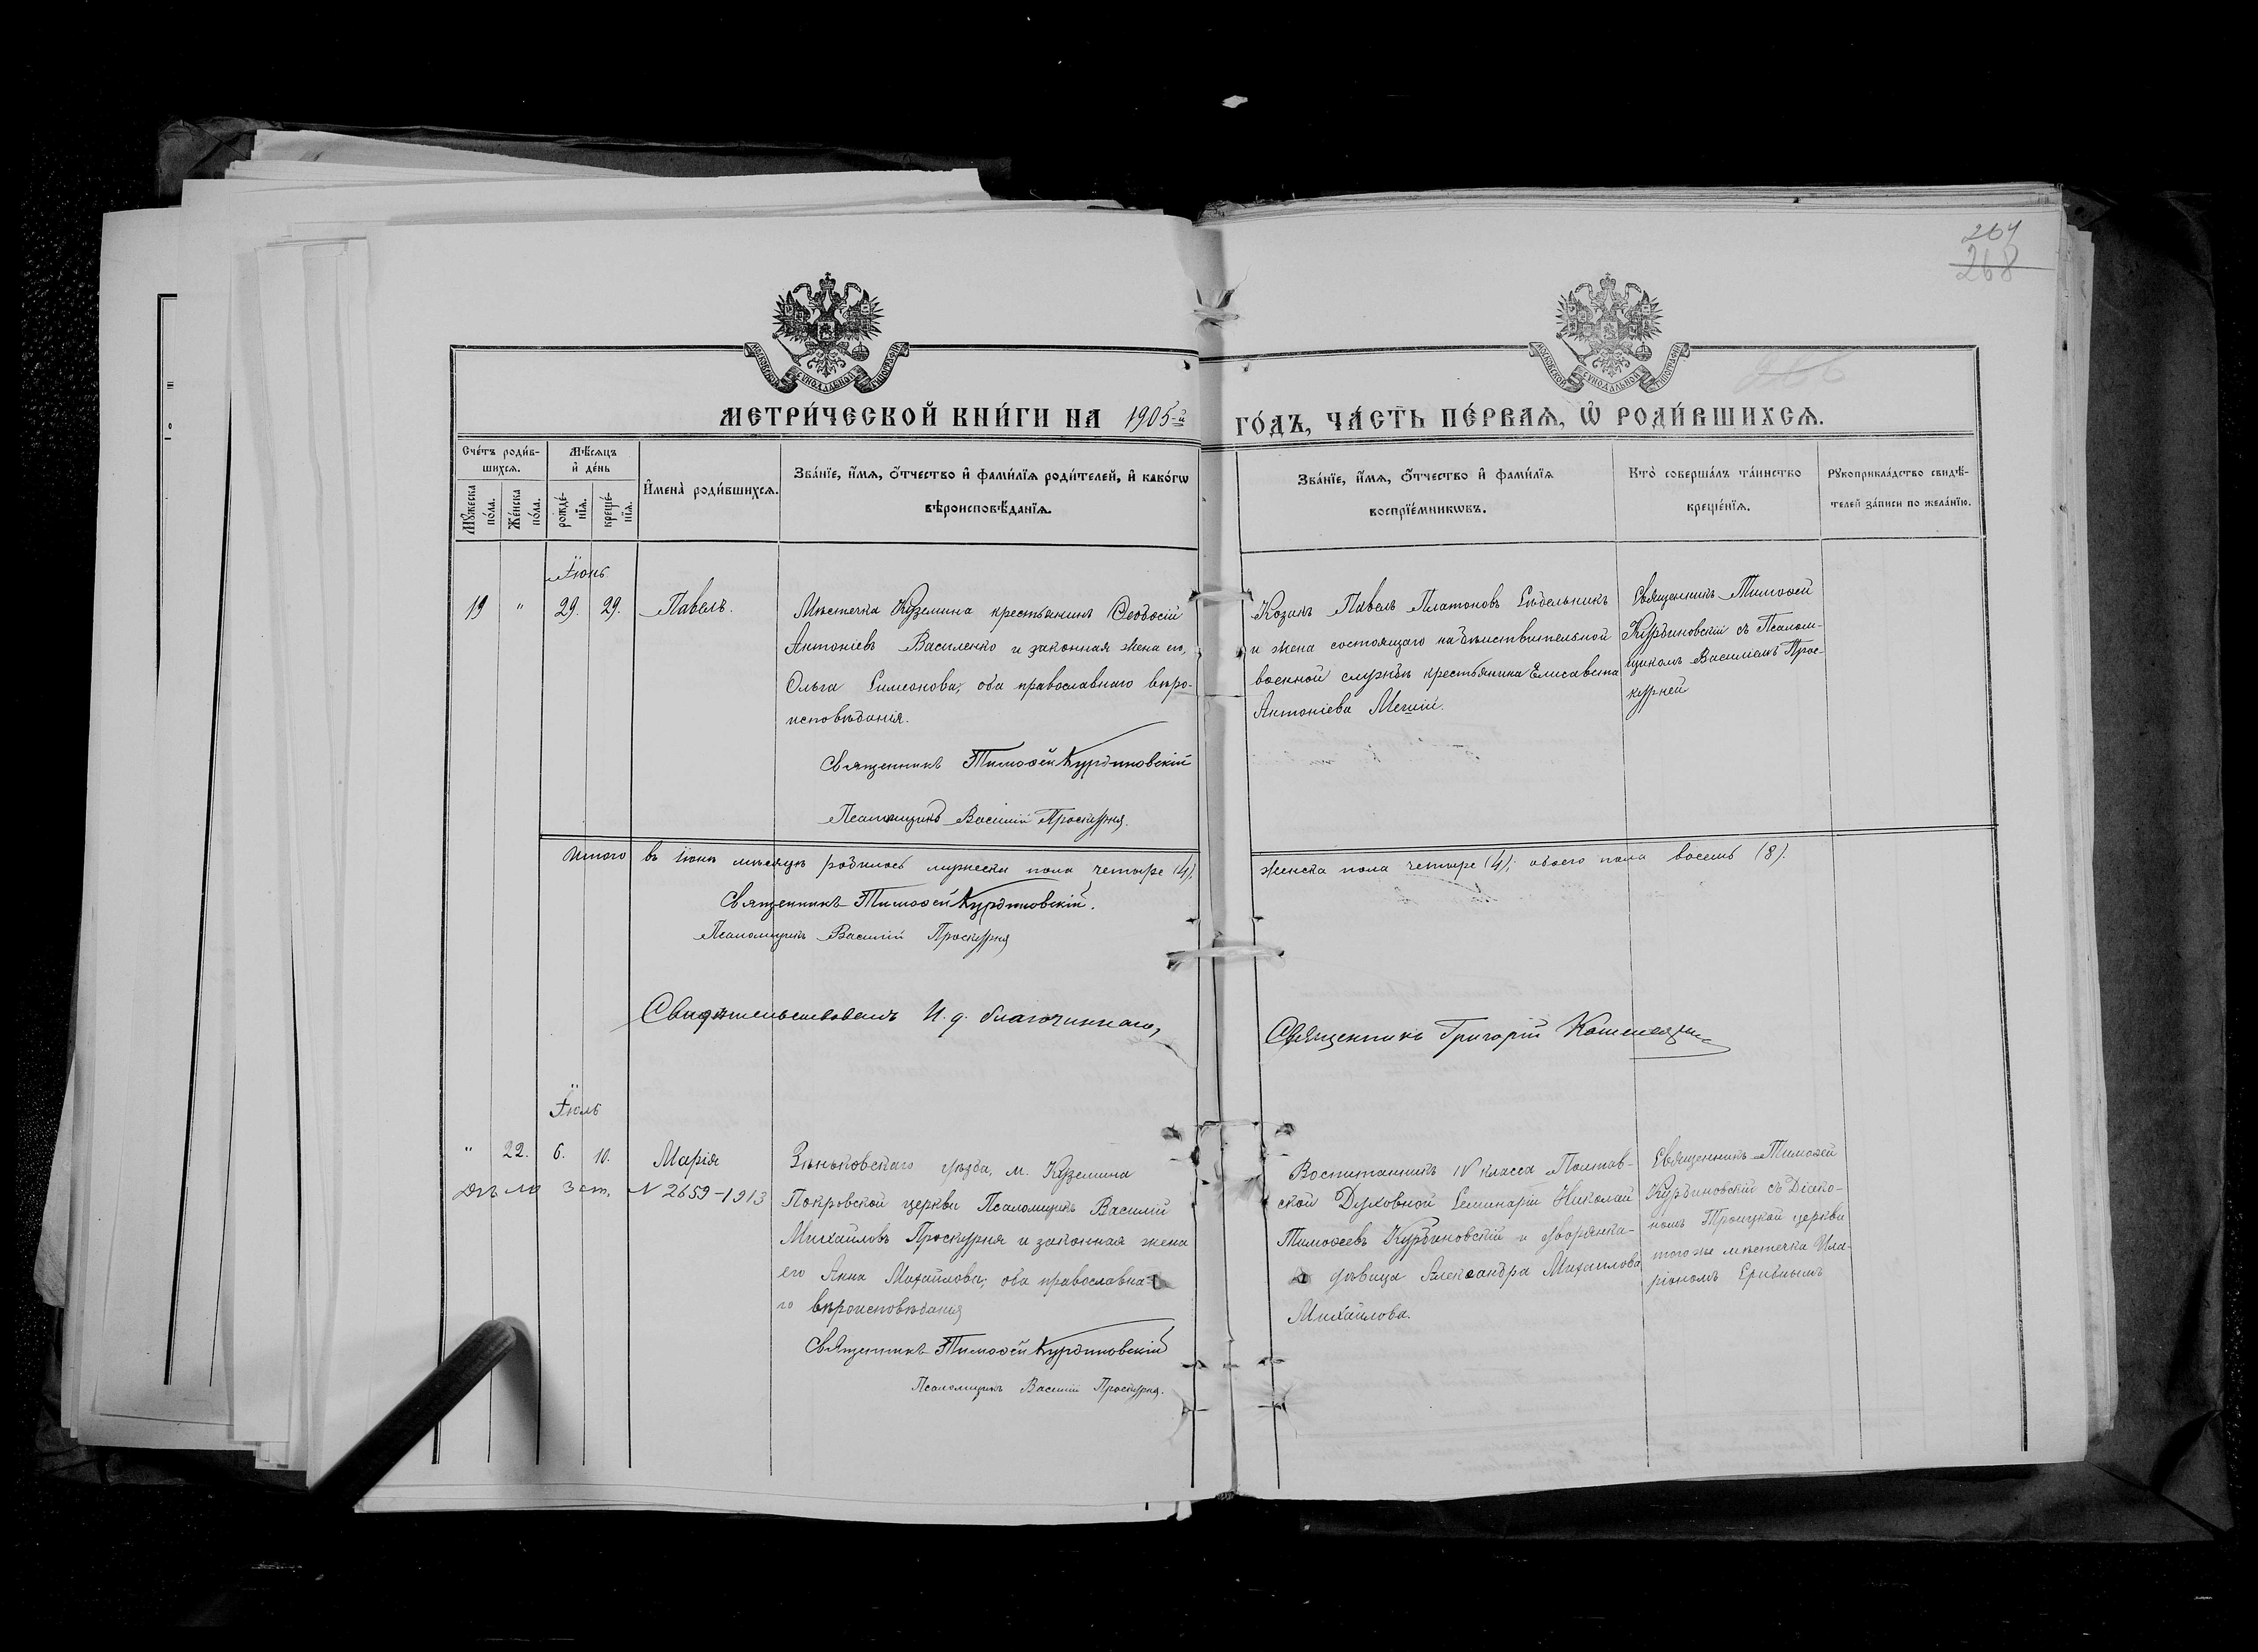 264
268
266
МОСКОВСКОЙ СѴНОДАЛЬНОЙ ТИПОГРАФІИ
МОСКОВСКОЙ СѴНОДАЛЬНОЙ ТИПОГРАФІИ
МЕТРИ́ЧЕСКОЙ КНИ́ГИ НА 1905-й ГО́ДЪ, ЧА́СТЬ ПЕ́РВАѦ, Ѽ РОДИ́ВШИХСѦ.
Сче́тъ роди́в-
шихсѧ.
Мꙋ́жеска
по́ла.
Же́нска
по́ла.
Мѣ́сѧцъ
и҆ де́нь
рожде́-
нїѧ.
креще́-
нїѧ.
И҆мена̀ роди́вшихсѧ.
Зва́нїе, и҆́мѧ, ѻ҆́тчество и҆ фами́лїѧ роди́телей, и҆ како́гѡ
вѣроисповѣ́данїѧ.
Зва́нїе, и҆́мѧ, ѻ҆́тчество и҆ фами́лїѧ
воспрїе́мникѡвъ.
Кто̀ соверша́лъ та́инство
креще́нїѧ.
Рꙋкоприкла́дство свидѣ́-
телей за́писи по жела́нїю.
Іюнь
19 " 29. 29. Павелъ.
Мѣстечка Куземина крестьянинъ Ѳеодосій
Антоніевъ Василенко и законная жена его,
Ольга Симеонова, оба православнаго вѣро-
исповѣданія.
Священникъ Тимоѳей Курдиновскій
Псаломщикъ Василій Проскурня.
Козакъ Павелъ Платоновъ Сидельникъ
и жена состоящаго на дѣйствительной
военной службѣ крестьянина Елисавета
Антоніева
Священникъ Тимоѳей
Курдиновскій съ Псалом-
щикомъ Василіемъ Прос-
курней
Итого въ Іюнѣ мѣсяцѣ родилось мужеска пола четыре (4), женска пола четыре (4); обоего пола восемь (8).
Священникъ Тимоѳей Курдиновскій.
Псаломщикъ Василій Проскурня
Свидѣтельствовалъ И. д. благочиннаго, Священникъ Григорій
Іюль
" 22. 6. 10. Марія
Дѣло 3 ст. N 2659-1913
Зѣньковскаго уѣзда, м. Куземина
Покровской церкви Псаломщикъ Василій
Михайловъ Проскурня и законная жена
его Анна Михайлова, оба православна-
го вѣроисповѣданія
Священникъ Тимоѳей Курдиновскій
Псаломщикъ Василій Проскурня.
Воспитанникъ IV класса Полтав-
ской Духовной Семинаріи Николай
Тимоѳеевъ Курдиновскій и дворянка-
дѣвица Александра Михаилова
Михайлова.
Священникъ Тимоѳей
Курдиновскій съ Діако-
номъ Троицкой церкви
того же мѣстечка Ила-
ріономъ